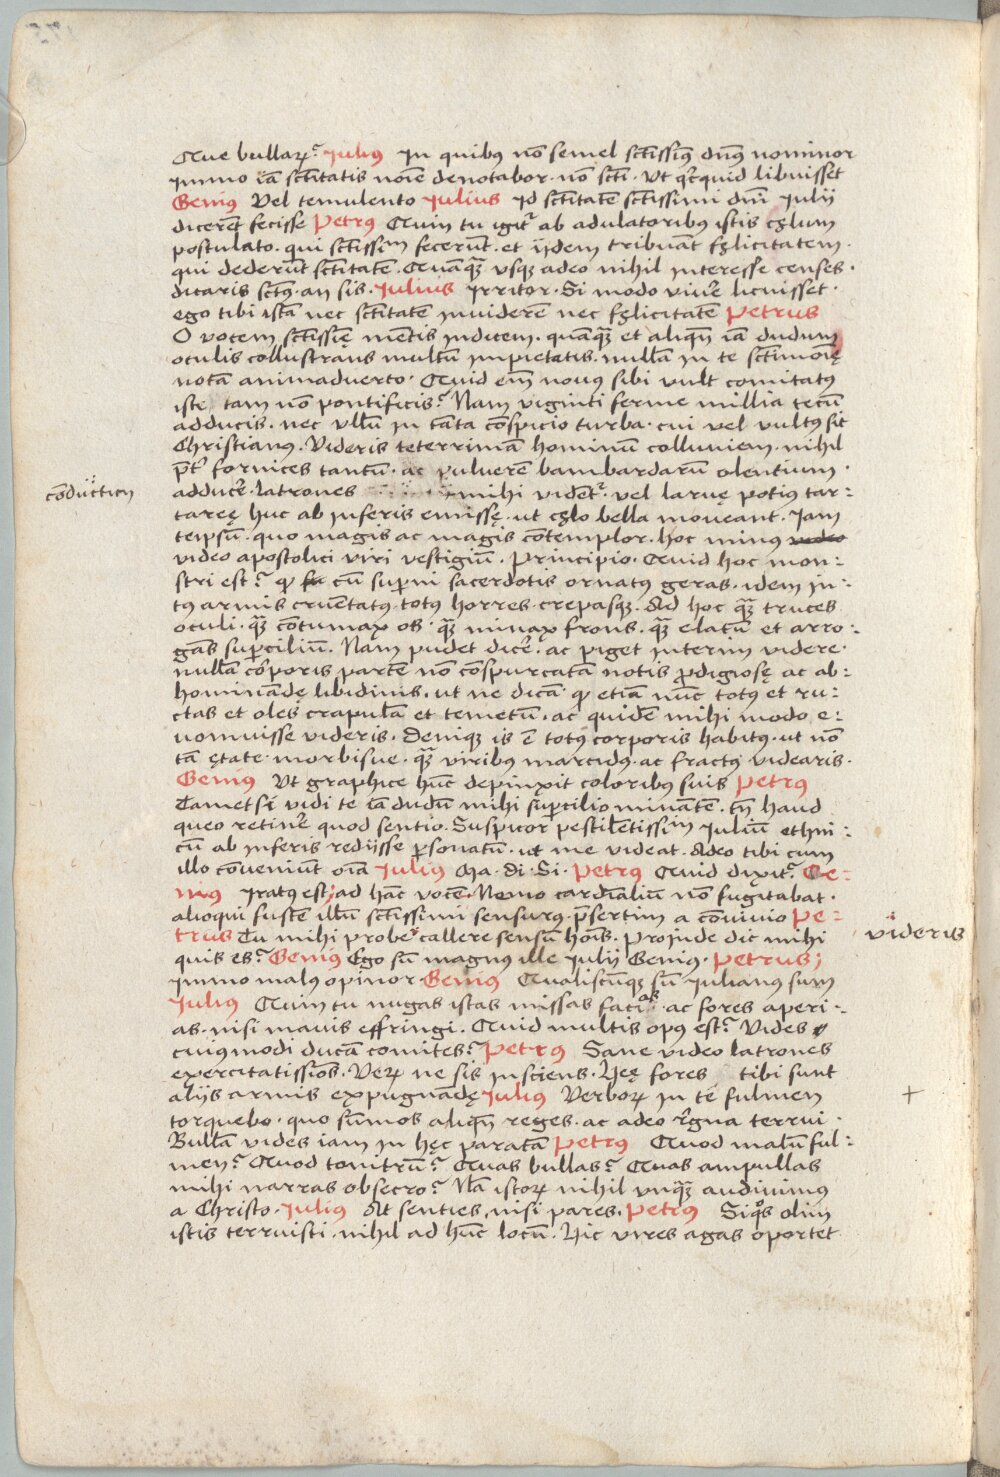 Quæ bullarꝝ? Julius In quibus nō semel sctissimꝰ dnꝰ nominor
immo iā sctitatis noīe denotabor nō scti. Ut qcquid libuisset
Genius Vel temulento Julius Id sctitatē sctissimi dnī Julij
dicerēt fecisse Petrus Quin tu igit᷑ ab adulatoribus istis cęlum
postulato. qui sctissimū fecerūt. et ijdem tribuāt fęlicitatem.
qui dederūt sctitatē. Quāqꝫ usqꝫ adeo nihil interesse censes.
dicaris sctꝰ. an sis. Julius Irritor. Si modo viuere licuisset.
ego tibi istā nec sctitatē inviderē nec fęlicitatē Petrus
O vocem sctissimę mētis indicem. quāqꝫ et aliqn̄ iā dudum
oculis collustrans multū impietatis. nullā in te sctimonię
notā animaduerto. Quid em̄ nouus sibi vult comitatꝰ
iste tam nō pontificis? Nam viginti ferme millia tecū
adducis. nec ullū in tāta cōspicio turba. cui vel vultꝰ sit
Christianus. Videris teterrimā hominū colluuiem. nihil
p̄t᷑ fornices tantū. ac puluerē bambardarū olentium.
cōductien
adducere. latrones mihi vident᷑. vel laruę potius tar⸗
tareę huc ab inferis emissę. ut cęlo bella moueant. Jam
teipsū. quo magis ac magis cōtemplor. hoc minus video
video apostolici viri vestigiū. Principio. Quid hoc mon⸗
stri est? ꝙ cū superni sacerdotis ornatꝰ geras. idem in⸗
tus armis cruētatꝰ. totus horres. crepasqꝫ. Ad hoc qꝫ truces
oculi. qꝫ cōtumax os. qꝫ minax frons. qꝫ elatū et arro⸗
gās supercilium. Nam pudet dicere. ac piget interim videre.
nullā cōrporis partē nō cōspurcatam notis prodigiosę ac ab⸗
hominādę libidinis. ut ne dicā. ꝙ etiā nūc totus et ru⸗
ctas et oles crapulā et temetū. ac quidē mihi modo e⸗
uomuisse videris. Deniqꝫ is ē totꝰ corporis habitꝰ. ut nō
tā ętate morbisue. qꝫ viribus marcidꝰ. ac fractꝰ videaris.
Genius Ut graphice hūc depinxit coloribus suis Petrus
Tametsi vidi te iādudū mihi supercilio mināte. tn̄ haud
queo retinere quod sentio. Suspicor pestilētissimū Juliū ethni⸗
cū ab inferis redijsse personatū. ut me videat. Adeo tibi cum
illo cōueniūt oīa Julius Ma. di. Si. Petrus Quid dixit? Ge⸗
nius Iratꝰ est; ad hāc vocē. Nemo cardinaliū nō fugitabat.
alioqui fustē illū sctissimi sensurꝰ. p̄sertim a conuiuio Pe⸗
trus Tu mihi probe callere sensū hoīs. Proinde dic mihi
videris
quis es? Genius Ego sū magnus ille Julij Genius. Petrus;
immo malus opinor Genius Qualiscūqꝫ sū Julianus sum
Julius Quin tu nugas istas missas facias. ac fores aperi⸗
as. nisi mauis effringi. Quid multis opꝰ est? Vides
cuiusmodi ducā comites? Petrus Sane video latrones
exercitatissimos. Verꝝ ne sis insciens. Hęę fores tibi sunt
alijs armis expugnādę Julius Verborꝝ in te fulmen
+
torquebo. quo sūmos aliqn̄ reges. ac adeo regna terrui.
Bullā vides iam in hęc paratā Petrus Quod malū ful⸗
men? Quod tonitrū? Quas bullas? Quas ampullas
mihi narras obsecro? Nā istorꝝ nihil unqꝫ audiuimꝰ
a Christo. Julius At senties. nisi pares. Petrus Si quos olim
istis terruisti. nihil ad hūc locū. Hic vires agas oportet